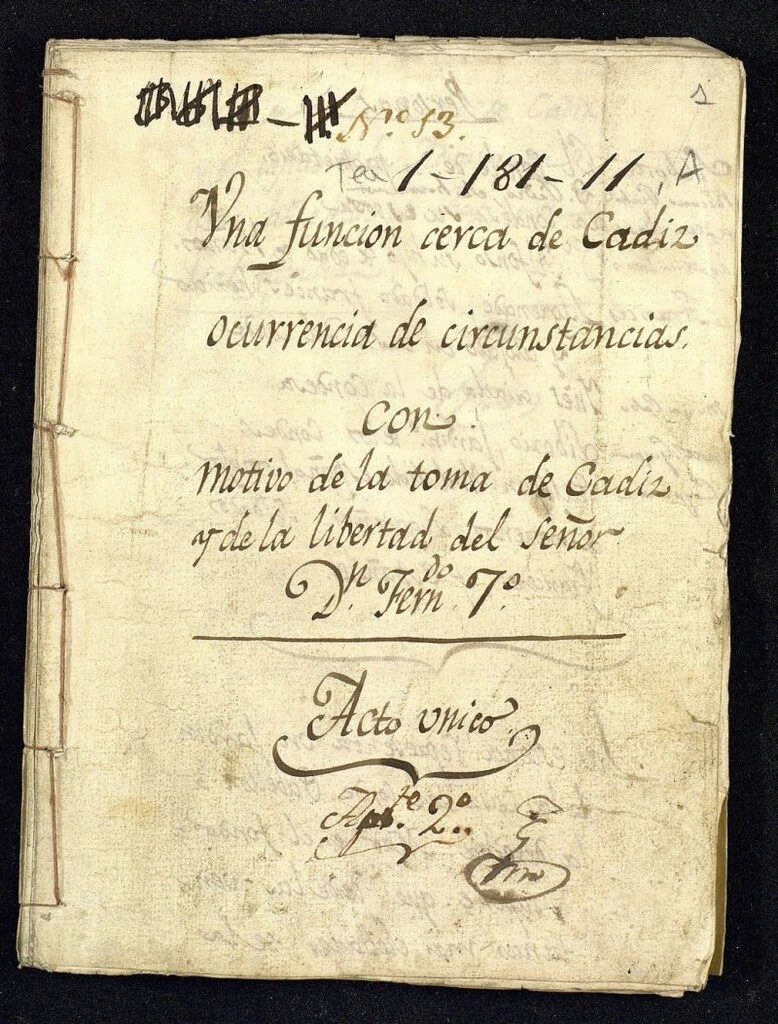 Nro 13.
1
Tea 1-181-11, A
Vna funcion cerca de Cadiz
ocurrencia de circunstancias.
con
motivo de la toma de Cadiz
y de la libertad del señor
Dn. Ferndo. 7º
Acto vnico.
Apte. 2º